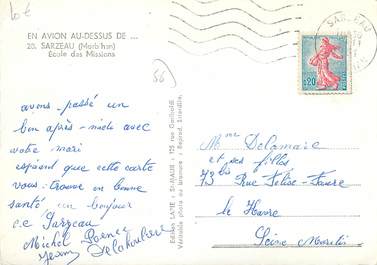 10 €
EN AVION AU-DESSUS DE ...
20. SARZEAU (Morb'han)
École des Missions
56
SARZEAU
0,20
avons passé un
bon après-midi avec
votre mari
espérant que cette carte
vous trouve en bonne
santé un bonjour
de Sarzeau
Michel
Editions LAPIE - St-MAUR - 125 rue Garibaldi
Véritable photo au bromure - Reprod. interdite.
Mme Delamare
et ses filles
73 bis Rue Félix-Faure
le Havre
Seine Maritime